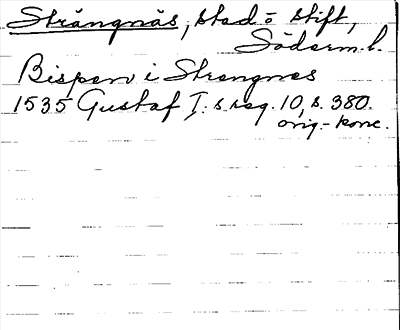 Strängnäs, stad o stift,
Söderm. l.
Bispen i Strengnes
1535 Gustaf I. s reg. 10, s. 380.
orig.-konc.